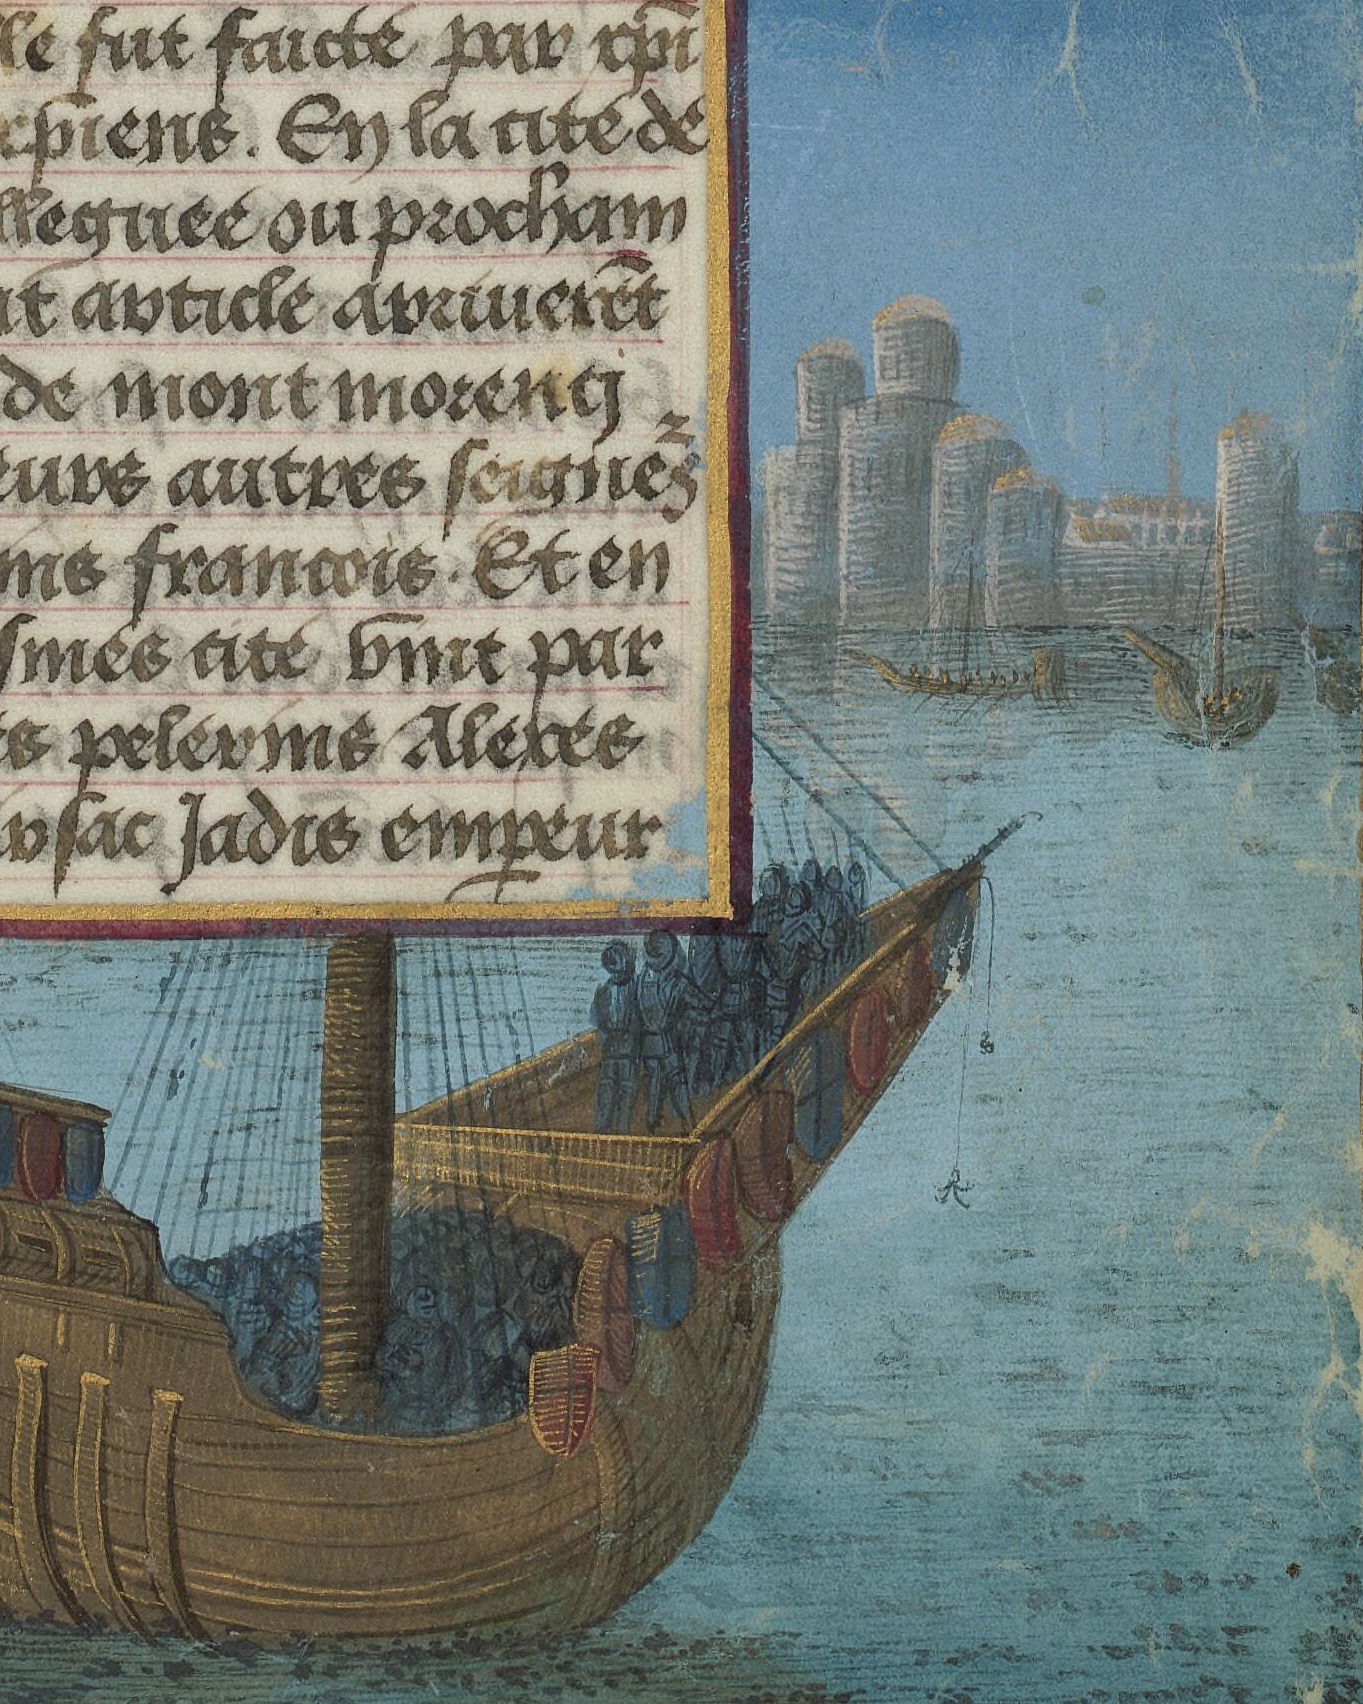 le fut faicte par xp̄i
xp̄iens. En la cite de
lleguee ou procham
nt article arriuerēt
de mont morencj
eurs autres seigneˀs
ms francois. Et en
smes cite vīnt par
es pelerins Alexes
ursac Jadis emꝑeur